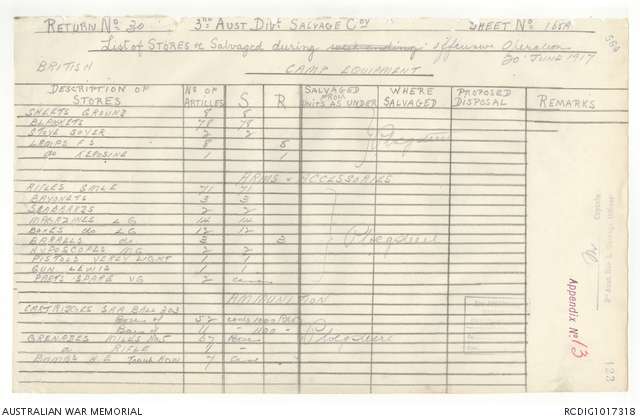 RETURN No 30 3RD AUST. DIVL SALVAGE COY SHEET No 165A
List of STORES Salvaged during week ending offensive Operation
30 JUNE 1917
BRITISH CAMP EQUIPMENT
DESCRIPTION OF STORES No OF ARTICLES S R SALVAGED FROM UNITS AS UNDER WHERE SALVAGED PROPOSED DISPOSAL REMARKS
SHEETS GROUND 8 8
BLANKETS 78 78
STOVE SOYER 2 2
LAMPS F.S 8 8
do KEROSINE 1 1
ARMS & ACCESSORIES
RIFLES SMLE 71 71
BAYONETS 3 3
2 2
MAGAZINES LG 14 14
BOXES do LG 12 12
BARRELLS do 3 3
HYDOSCOPES MG 2 2
PISTOLS VEREY LIGHT 1 1
GUN LEWIS 1 1
PARTS SPARE VG 2 cases
AMMUNITION
CARTRIDGES SAA BALL 303
Boxes of 52
Boxes of 11
GRENADES MILLS No 5 67 Boxes
RIFLE 9
BOMBS 7 Cases
Appendix No 13
123
AUSTRALIAN WAR MEMORIAL RCDIG1017318